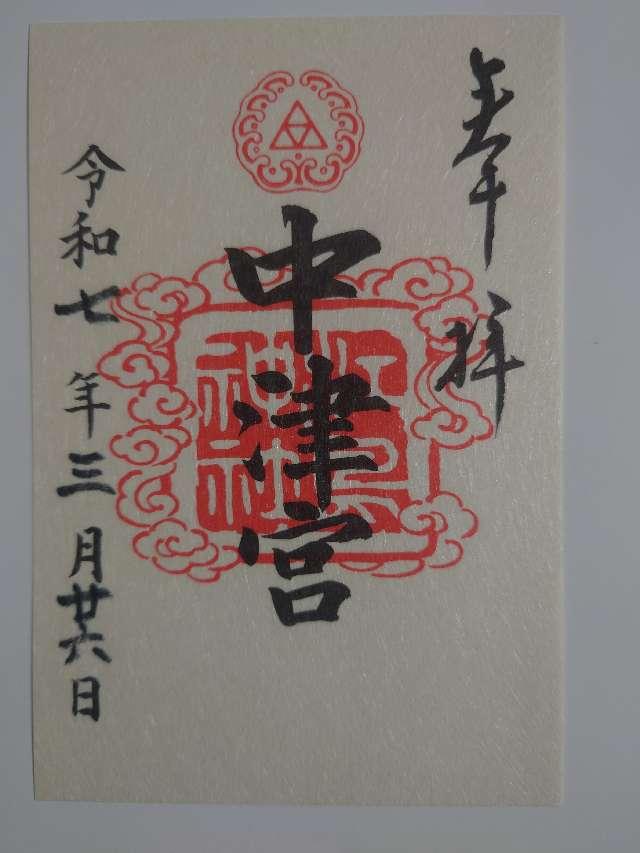 奉拝
中津宮
令和七年三月廿六日